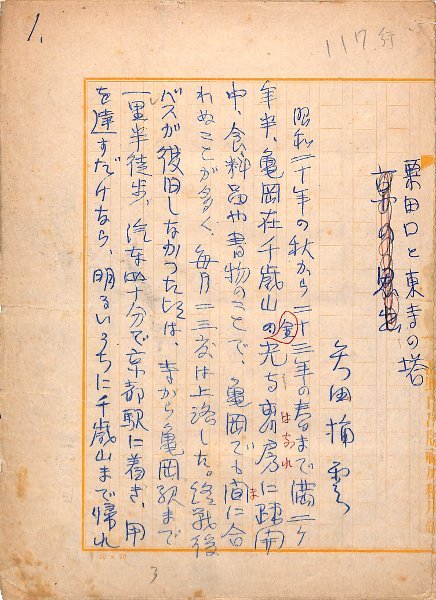 1.
117行
粟田口と東寺の塔
矢田挿雲
昭和二十年の秋から二十三年の春まで満二ケ
年半、亀岡在千歳山の金光寺専房に疎開
はなれ
中、食料品や書物のことで、亀岡でも間に合
ま
われぬことが多く、毎月二三度は上洛した。終戦後
バスが復旧しなかつた頃は、寺から亀岡駅まで
一里半徒歩、汽車四十分で京都駅に着き、用
を達すだけなら、明るいうちに千歳山まで帰れ
20×20
3